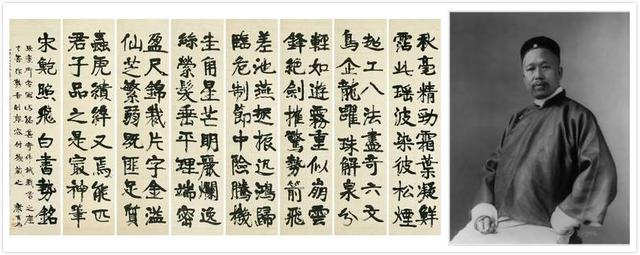 秋毫精勁霜葉凝鮮
霑此瑶波染彼松煙
超工八法盡奇六文
鳥企龍躍珠解泉分
輕如遊霧重似崩雲
鋒絕劍摧驚勢箭飛
差池燕起振迅鴻歸
臨危制節中險騰機
圭角星芒明麗爛逸
絲縈髮垂平理端密
盈尺錦裁片字金溢
仙芝繁弱既匪足質
蟲虎又焉能匹
君子品之是冣神筆
宋鮑照飛白書勢銘